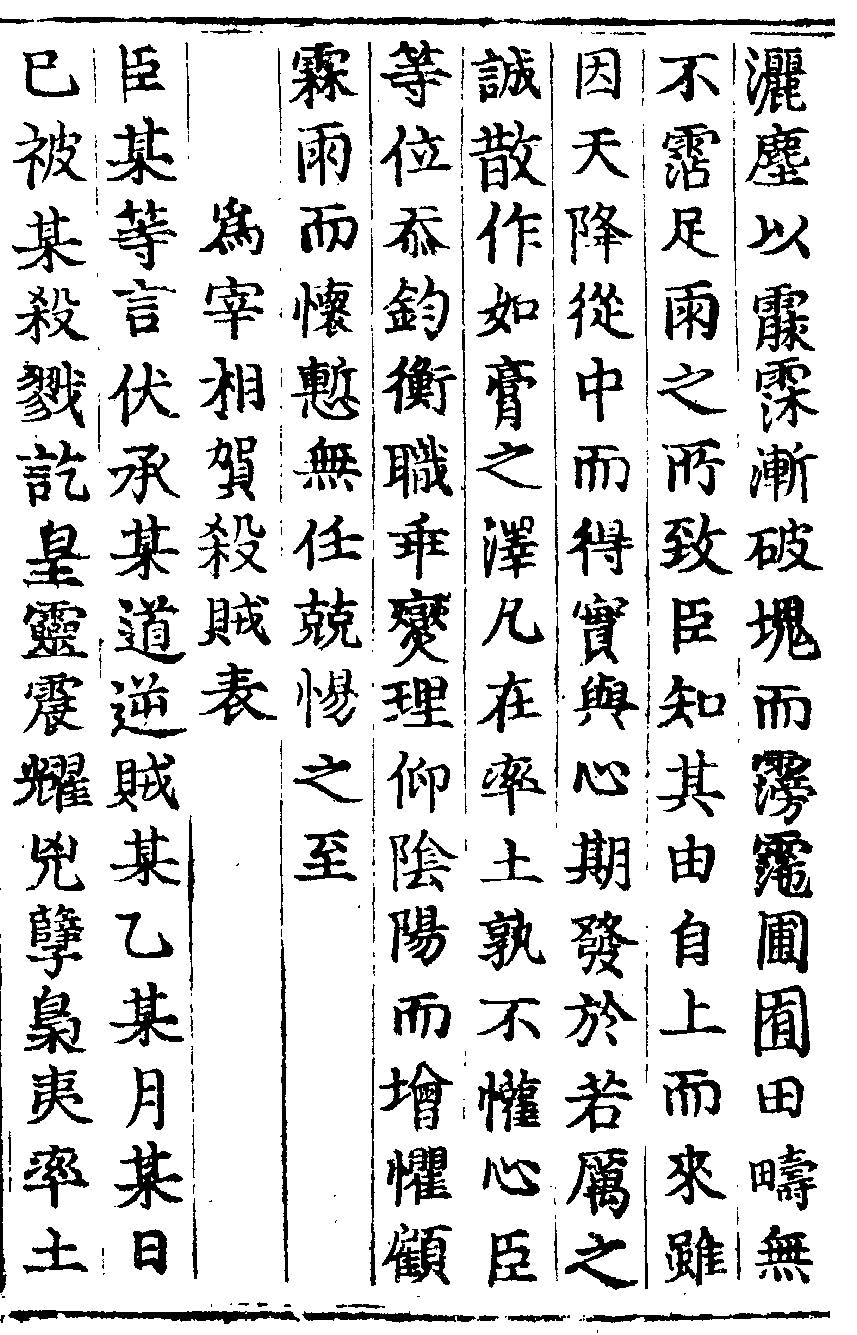 灑塵以霢霂漸破塊而霶霔圃囿田疇無
不霑足雨之所致臣知其由自上而來雖
因天降從中而得實與心期發於若厲之
誠散作如膏之澤凡在率土孰不懽心臣
等位忝鈞衡職乖燮理仰陰陽而增懼顧
霖雨而懷慙無任兢惕之至
爲宰相賀殺賊表
臣某等言伏承某道逆賊某乙某月某日
已被某殺戮訖皇靈震耀兇孽梟夷率土